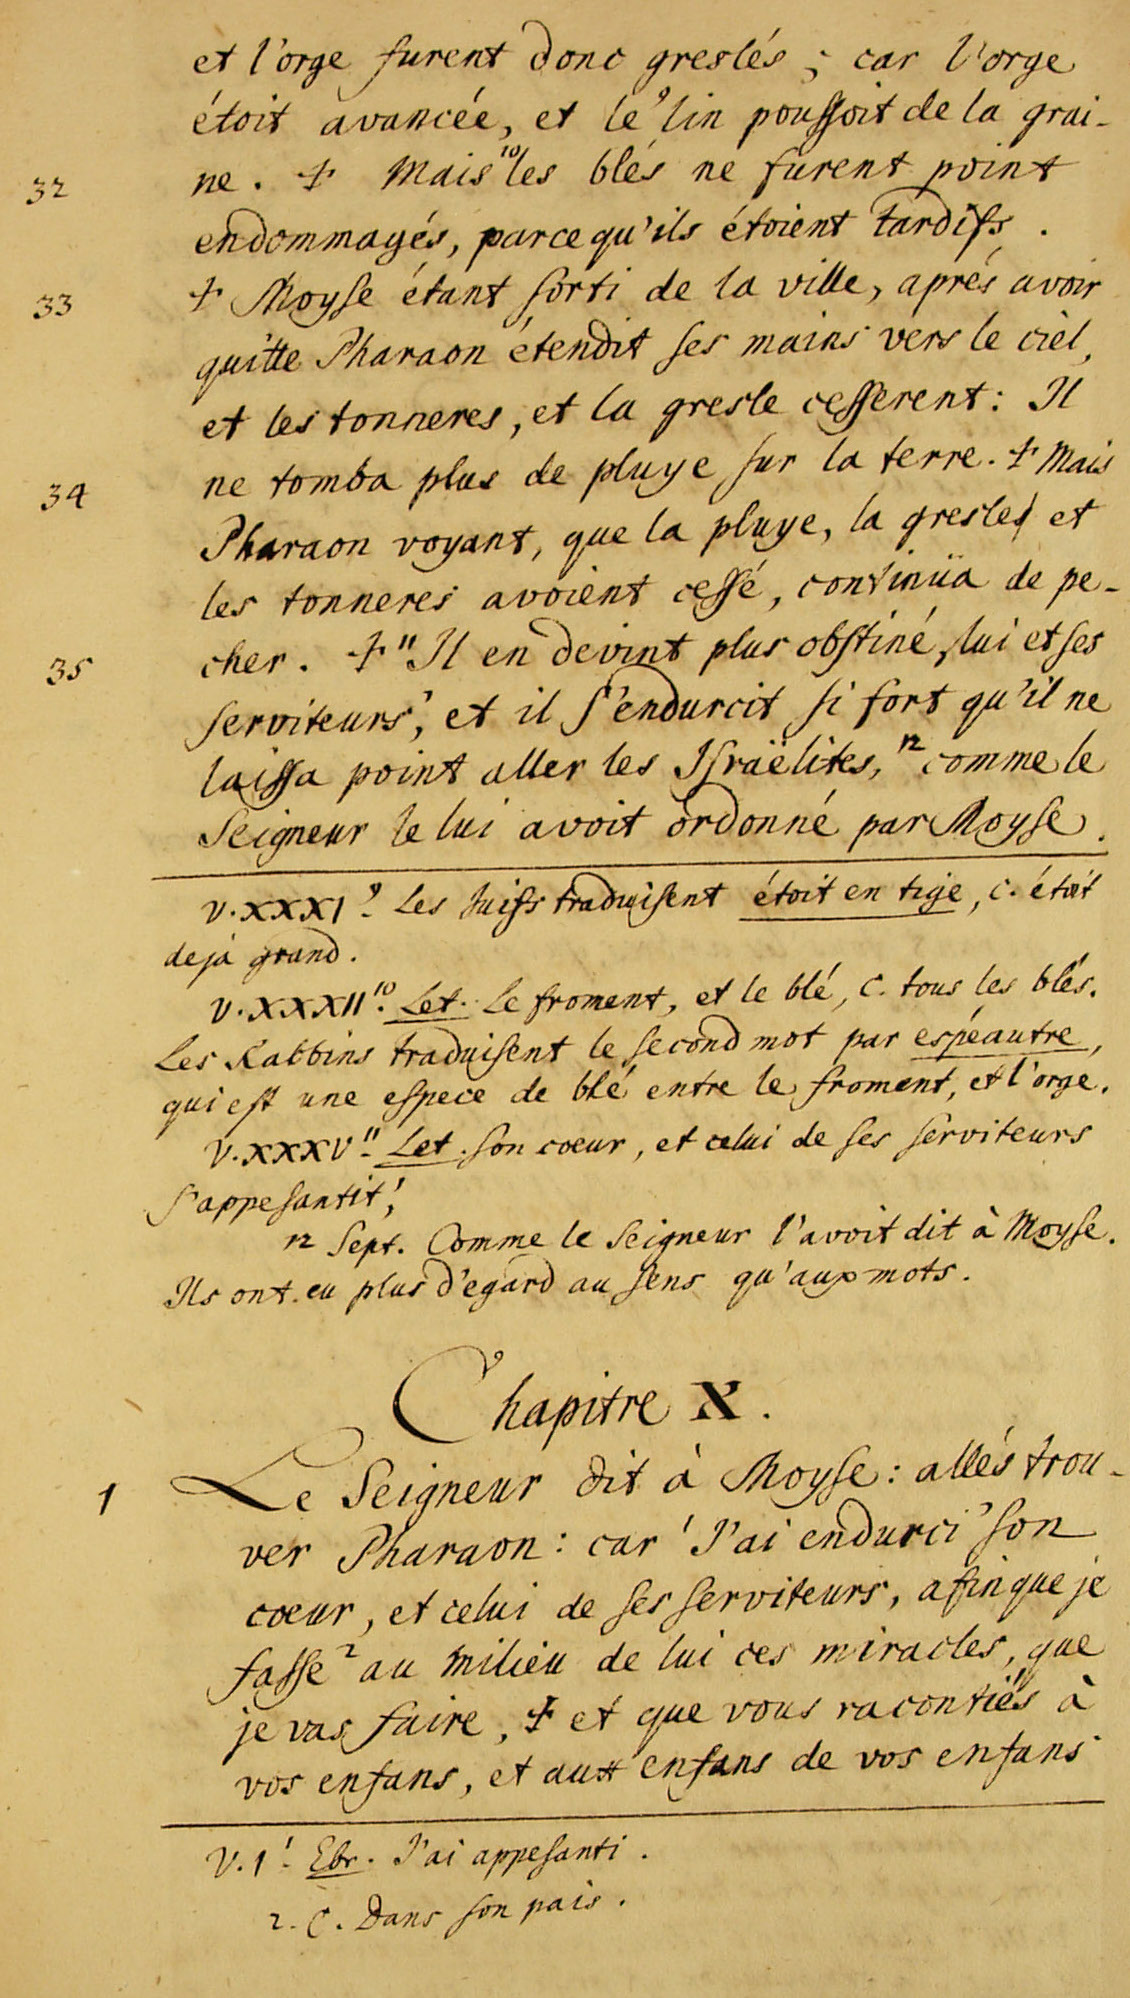 et l'orge furent donc greslés ; car l'orge
étoit avancée, et le ⁹lin poussoit de la grai-
32 ne. ☩ Mais ¹⁰les blés ne furent point
endommagés, parcequ'ils étoient tardifs.
33 ☩ Moyse étant sorti de la ville, aprés avoir
quitté Pharaon étendit ses mains vers le ciel,
et les tonneres, et la gresle cesserent : Il
ne tomba plus de pluye sur la terre. ☩ Mais
34 Pharaon voyant, que la pluye, la gresle, et
les tonneres avoient cessé, continüa de pe-
35 cher. ☩ ¹¹Il en devint plus obstiné, lui et ses
serviteurs', et il s'endurcit si fort qu'il ne
laissa point aller les Israëlites, ¹²comme le
Seigneur le lui avoit ordonné par Moyse.
V. XXXI ⁹. Les Juifs traduisent étoit en tige, c. étoit
deja grand.
V. XXXII ¹⁰. Let. Le froment, et le blé, c. tous les blés.
Les Rabbins traduisent le second mot par espéautre,
qui est une espece de blé entre le froment, et l'orge.
V. XXXV ¹¹. Let. son coeur, et celui de ses serviteurs
s'appesantit',
12 Sept. Comme le Seigneur l'avoit dit à Moyse.
Ils ont eu plus d'egard au sens qu'aux mots.
Chapitre X.
1 Le Seigneur dit à Moyse : allés trou-
ver Pharaon : car ¹J'ai endurci' son
coeur, et celui de ses serviteurs, afinque je
fasse ²au milieu de lui ces miracles, que
je vas faire, ☩ et que vous racontiés à
vos enfans, et aux enfans de vos enfans
V. 1 ¹. Ebr. J'ai appesanti.
2. C. Dans son païs.